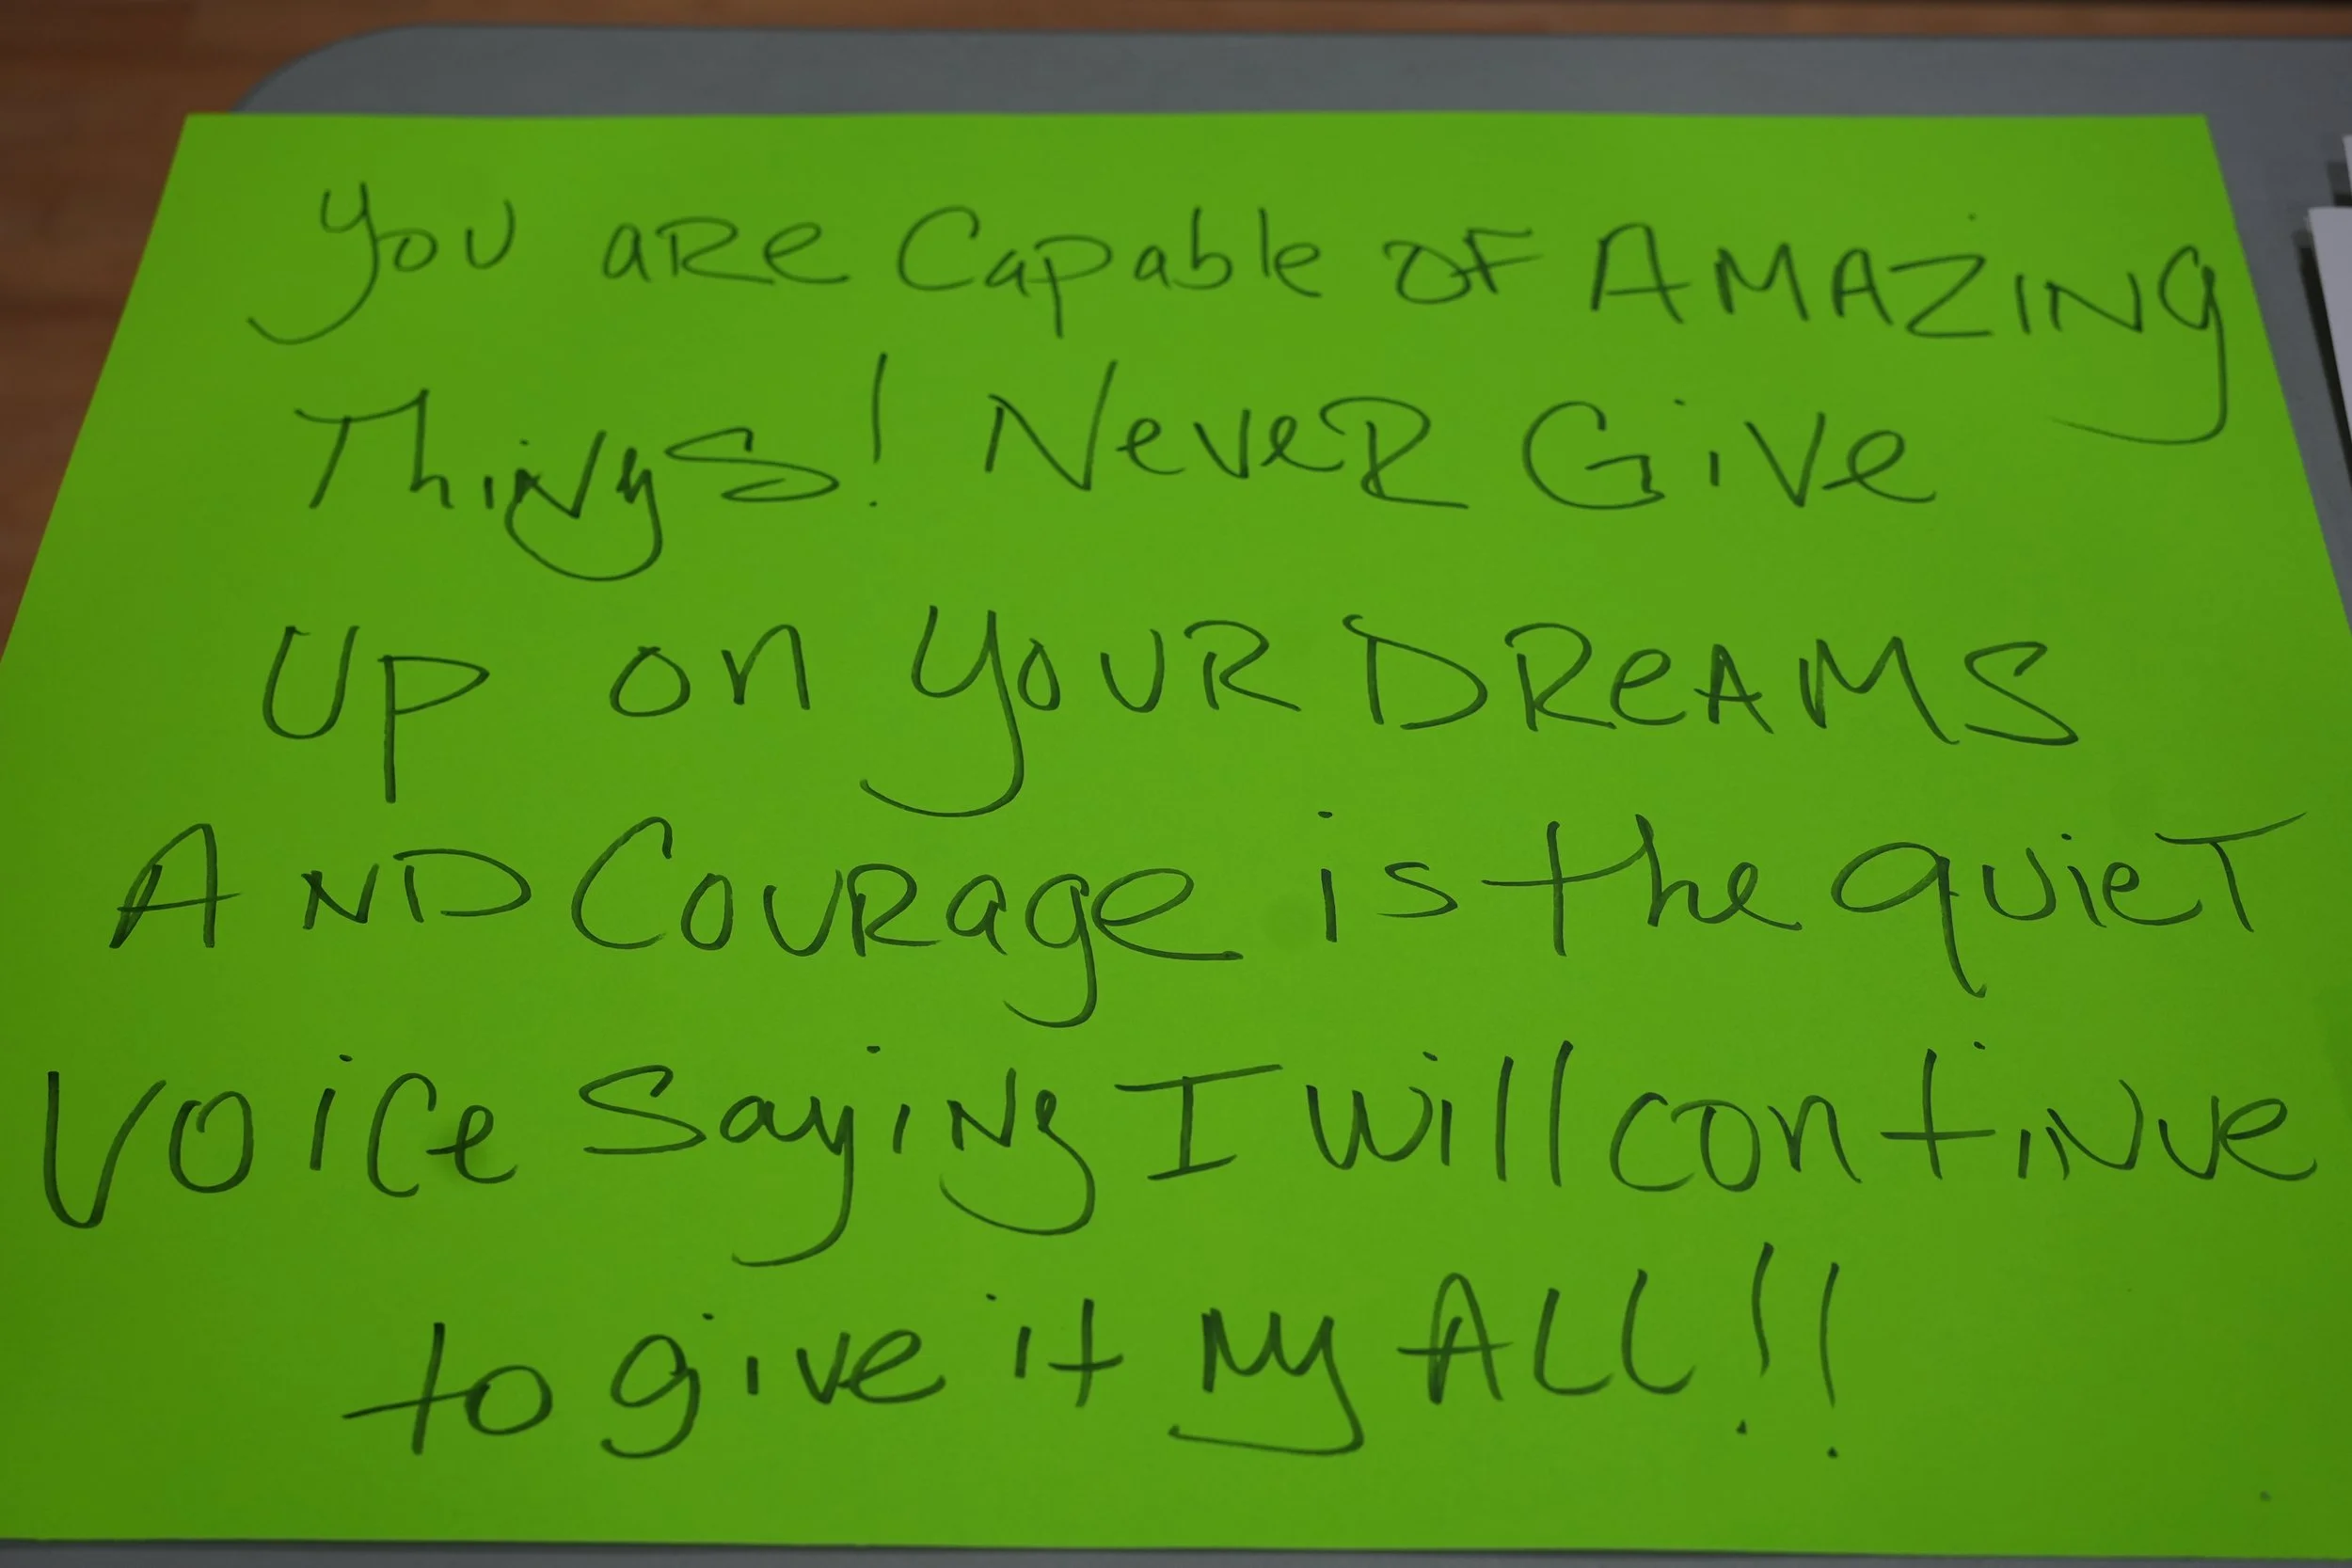 You are Capable of AMAZING
Things! Never Give
Up on YOUR DREAMS
AND Courage is the quiet
Voice Saying I will continue
to give it My ALL!!